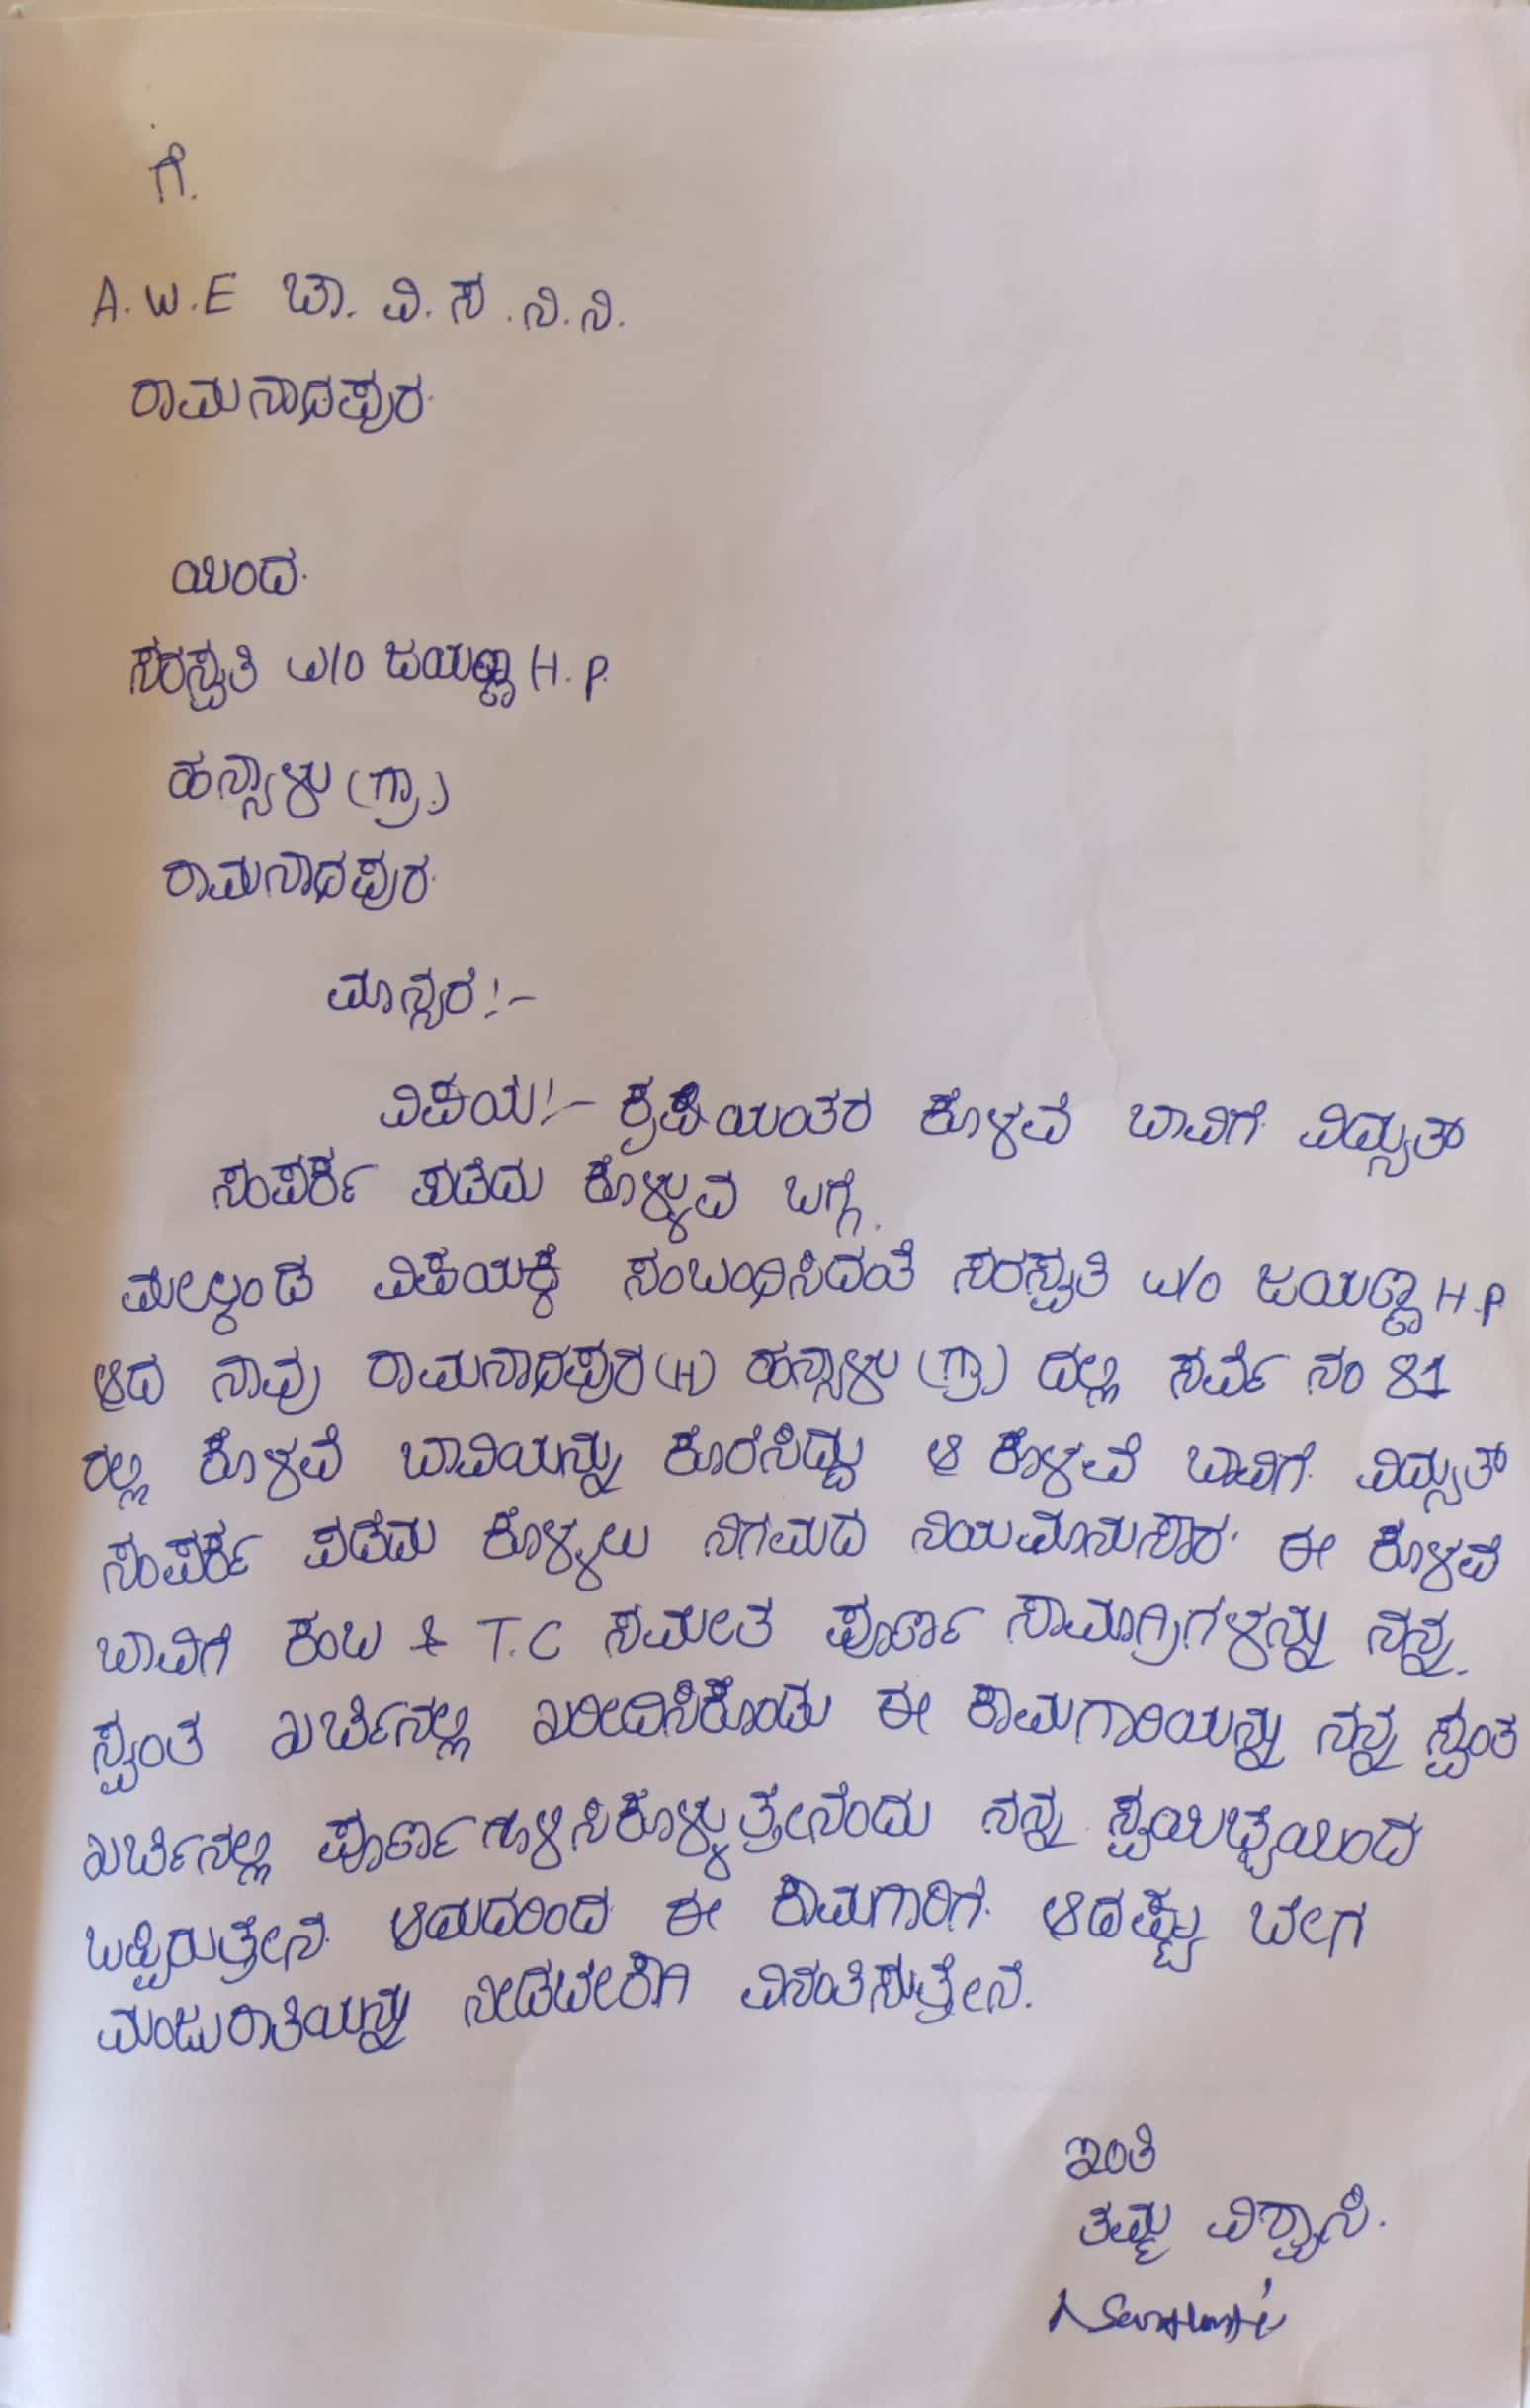 ಗೆ.
A.W.E ಚಾ. ವಿ. ಸ. ನಿ. ನಿ.
ರಾಮನಾಥಪುರ.
ಯಿಂದ.
ಸರಸ್ವತಿ w/o ಜಯಣ್ಣ H.P.
ಹನ್ಯಾಳು (ಗ್ರಾ.)
ರಾಮನಾಥಪುರ.
ಮಾನ್ಯರೆ:-
ವಿಷಯ:- ಕ್ರಷಿಯಂತರ ಕೊಳವೆ ಬಾವಿಗೆ ವಿದ್ಯುತ್
ಸಂಪರ್ಕ ಪಡೆದು ಕೊಳ್ಳುವ ಬಗ್ಗೆ.
ಮೇಲ್ಕಂಡ ವಿಷಯಕ್ಕೆ ಸಂಬಂಧಿಸಿದಂತೆ ಸರಸ್ವತಿ w/o ಜಯಣ್ಣ H.P
ಆದ ನಾವು ರಾಮನಾಥಪುರ (H) ಹನ್ಯಾಳು (ಗ್ರಾ) ದಲ್ಲಿ ಸರ್ವೆ ನಂ 81
ರಲ್ಲಿ ಕೊಳವೆ ಬಾವಿಯನ್ನು ಕೊರೆಸಿದ್ದು ಆ ಕೊಳವೆ ಬಾವಿಗೆ ವಿದ್ಯುತ್
ಸಂಪರ್ಕ ಪಡೆದು ಕೊಳ್ಳಲು ನಿಗಮದ ನಿಯಮಾನುಸಾರ. ಈ ಕೊಳವೆ
ಬಾವಿಗೆ ಕಂಬ & T.C ಸಮೇತ ಪೂರ್ಣ ಸಾಮಾಗ್ರಿಗಳನ್ನು ನನ್ನ
ಸ್ವಂತ ಖರ್ಚಿನಲ್ಲಿ ಖರೀದಿಸಿಕೊಂಡು ಈ ಕಾಮಗಾರಿಯನ್ನು ನನ್ನ ಸ್ವಂತ
ಖರ್ಚಿನಲ್ಲಿ ಪೂರ್ಣಗೊಳಿಸಿಕೊಳ್ಳುತ್ತೇನೆಂದು ನನ್ನ ಸ್ವಯಿಚ್ಛೆಯಿಂದ
ಒಪ್ಪಿರುತ್ತೇನೆ. ಆದುದರಿಂದ ಈ ಕಾಮಗಾರಿಗೆ. ಆದಷ್ಟು ಬೇಗ
ಮಂಜುರಾತಿಯನ್ನು ನೀಡಬೇಕಾಗಿ ವಿನಂತಿಸುತ್ತೇನೆ.
ಇಂತಿ
ತಮ್ಮ ವಿಶ್ವಾಸಿ.